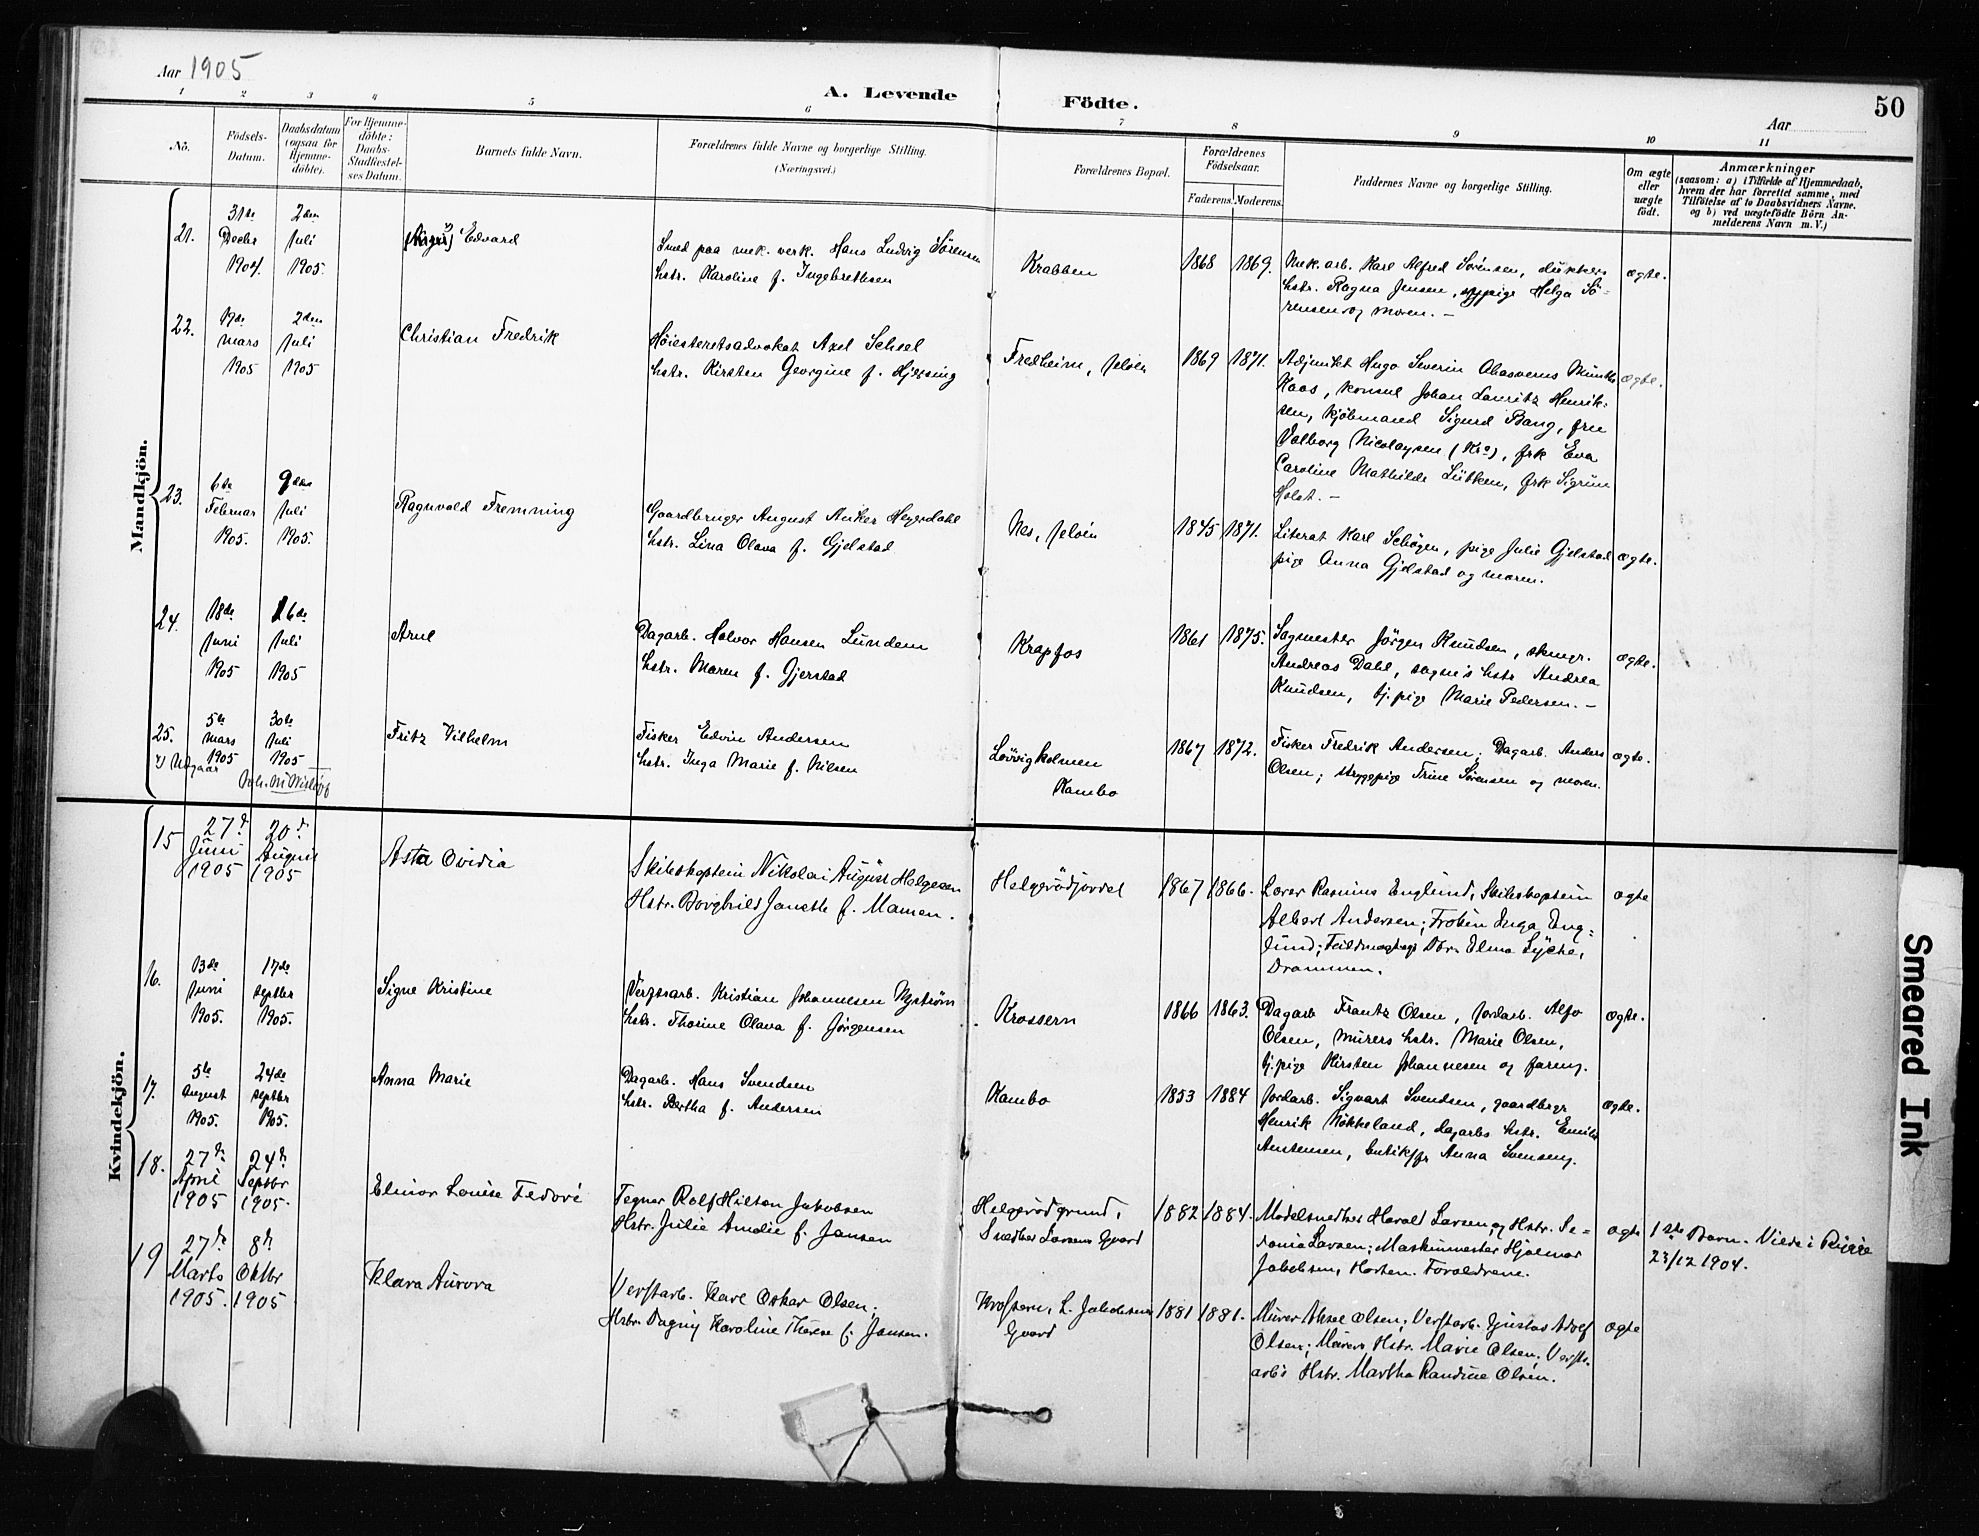 Aar 1905
A. Levende Födte.
50
Aar
1 2 3 4 5 6 7 8 9 10 11
No.
Födsels-Datum.
Daabsdatum (ogsaa for Hjemme-döbte).
For Hjemme-döbte: Daabs-Stadfæstel-ses Datum.
Barnets fulde Navn.
Forældrenes fulde Navne og borgerlige Stilling.
(Næringsvei.)
Forældrenes Bopæl.
Forældrenes Födselsaar.
Faderens. Moderens.
Faddernes Navne og borgerlige Stilling.
Om ægte eller uægte födt.
Anmærkninger
(saasom: a) i Tilfælde af Hjemmedaab,
hvem der har forrettet samme, med
Tilföielse af to Daabsvidners Navne.
og b) ved uægtefödte Börn An-
melderens Navn m. V.)
Mandkjön.
21.
31te Decbr 1904.
2den Juli 1905.
Edvard
Smed paa mek. verk. Hans Ludvig Sørensen
hstr. Karoline f. Ingebretsen
Krabben
1868 1869.
Mek. arb. Karl Alfred Sørensen, dukkers
hstr. Ragna Jensen, sypige Helga Sö-
rensen og moren. –
ægte.
22.
19de mars 1905
2den Juli 1905
Christian Fredrik
Høiesteretsadvokat Axel Scheel
hstr. Kirsten Georgine f. Hjersing
Fredheim, Jeløen
1869 1871.
Adjunkt Hugo Severin Ahasverus Munthe
Kaas, konsul Johan Lauritz Henrik-
sen, kjöbmand Sigurd Bang, fru
Valborg Nicolaysen (Kra), frk Eva
Caroline Mathilde Lütken, frk Sigrun
Holst. –
ægte.
23.
6te Februar 1905.
9de Juli 1905.
Ragnvald Fremming
Gaardbruger August Anker Heyerdahl
hstr. Lina Olava f. Gjelstad
Nes, Jeløen
1845 1871.
Literat Karl Schøyen, pige Julie Gjelstad
pige Anna Gjelstad og moren.
ægte.
24.
18de Juni 1905
16de Juli 1905
Arne
Dagarb. Halvor Hansen Lundem
hstr. Maren f. Gjerstad
Krapfos
1861 1875.
Sagmester Jörgen Knudsen, skmgr.
Andreas Dahl, sagm's hstr Andrea
Knudsen, tj. pige Marie Pedersen. –
ægte.
25.
5te mars 1905
30te Juli 1905
Fritz Vilhelm
Fisker Edvin Andersen
hstr. Inga Marie f. Nilsen
Løvvigholmen
Kambo
1867 1872.
Fisker Fredrik Andersen, Dagarb. Anders
Olsen; strygepige Trine Sørensen og moren.
ægte.
x) Udgaar
Kvindekjön.
15
27d Juni 1905
20d August 1905
Asta Ovidia
Skibskaptein Nikolai August Helgesen
Hstr. Borghild Janeth f. Mamen.
Helgerödjordet
1867 1866.
Lærer Rasmus Englund, Skibskaptein
Albert Andersen; Fröken Inga Eng-
lund; Fuldmægtigs Dtr. Elma Lyche,
Drammen.
ægte
16.
13de Juni 1905.
17de septbr 1905.
Signe Kristine
Verftsarb. Kristian Johannesen Nyström
hstr. Thorine Olava f. Jørgensen
Krossern
1866 1863.
Dagarb Frantz Olsen, jordarb. Alfo
Olsen, murers hstr. Marie Olsen,
tj. pige Kirsten Johannesen og farens.
ægte.
17.
5te august 1905.
24de septbr 1905.
Anna Marie
Dagarb. Hans Svendsen
hstr. Bertha f. Andersen
Kambo
1853 1884
Jordarb. Sigvart Svendsen, gaardbrgr
Henrik Nökkeland, dagarbs hstr. Emilie
Anstensen, butikfr Anna Svensen.
ægte.
18.
27d. April 1905
24d. Septbr 1905.
Elinor Louise Fedora
Tegner Rolf Hilton Jakobsen
Hstr. Julie Amalie f. Jansen
Helgerödgrund,
Snedker Larsens Gaard
1882 1884.
Modelsnedker Harald Larsen, og Hstr. Se-
donia Larsen; Maskinmester Hjalmar
Jakobsen, Horten. Forældrene.
ægte
1ste Barn. Viede i Rygge
23/12 1904.
19
27de Marts 1905.
8d. Oktbr 1905
Klara Aurora
Verftarb. Karl Oskar Olsen;
Hstr. Dagny Karoline Therese f. Jansen.
Krossern, L. Jakobsens
Gaard
1881 1881.
Murer Aksel Olsen; Verftarb. Gustav Adolf
Olsen; Murers Hstr. Marie Olsen; Verfts-
arb's Hstr. Martha Randine Olsen.
ægte
Smeared Ink